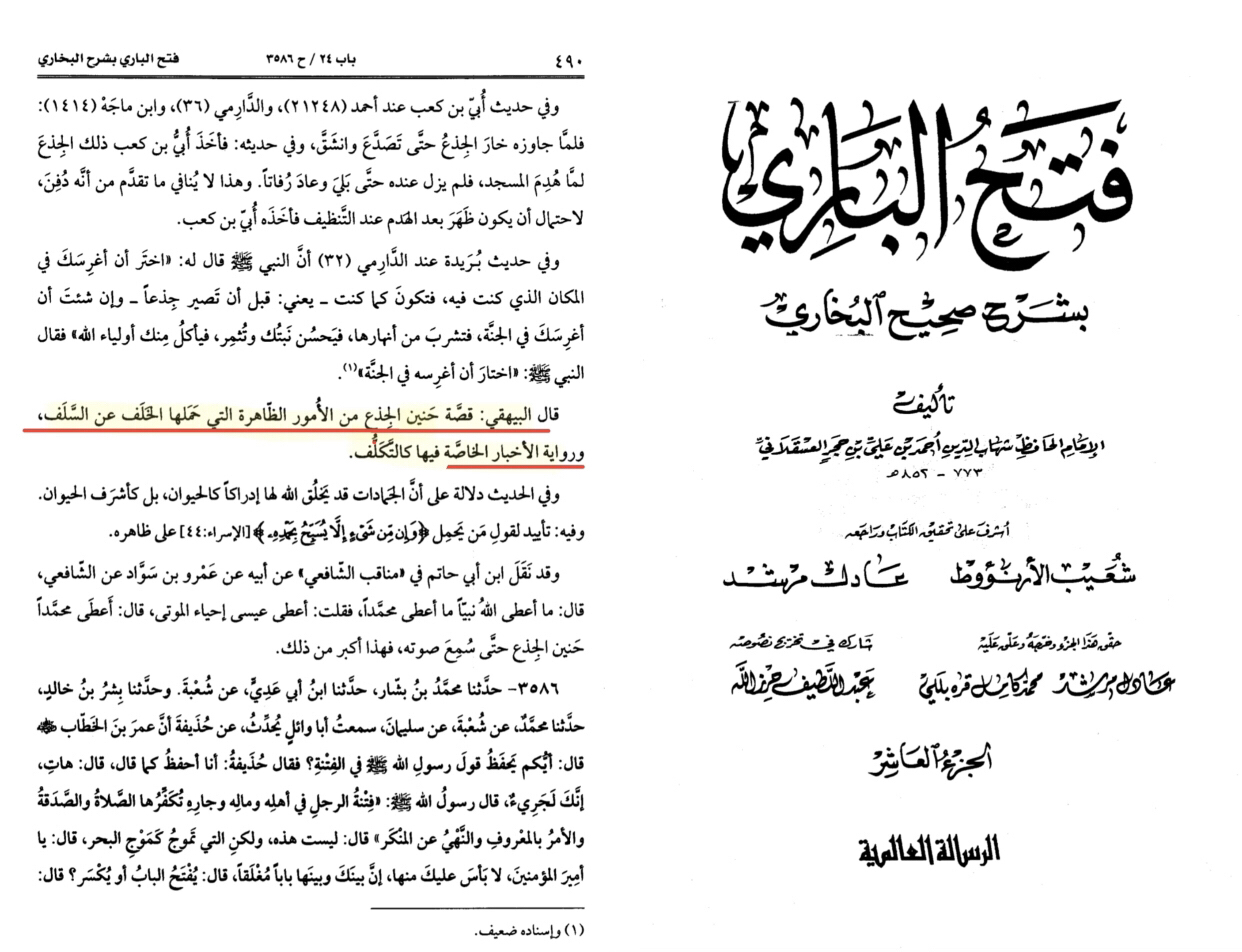 فَتحُ البَاري
بشَرح صَحِيح البُخَاري
تأليف
الإمَام الحَافِظ شهَاب الدِين أحمَد بن عَلي بن حَجَر العَسقَلاني
٧٧٣ - ٨٥٢ هـ
أشرفَ على تحقيق الكتَاب وَرَاجعَه
شُعَيب الأرنؤوط عَادل مرشد
حقّق هَذا الجزء وخرّجهُ وعَلّق عَليْه
شَارك في تخريج نصُوصه
عَادل مرشد محمّد كامِل قره بللي
عَبد اللّطيف حرز الله
الجزءُ العَاشِر
الرسالة العالمية
٤٩٠ باب ٢٤ / ح ٣٥٨٦ فتح الباري بشرح البخاري
وفي حديث أُبيّ بن كعب عند أحمد (٢١٢٤٨)، والدَّارِمي (٣٦)، وابن ماجَهْ (١٤١٤):
فلمَّا جاوزه خارَ الجِذعُ حتَّى تَصَدَّعَ وانشَقَّ، وفي حديثه: فأخَذَ أُبيُّ بن كعب ذلك الجِذعَ
لمَّا هُدِمَ المسجد، فلم يزل عنده حتَّى بَليَ وعادَ رُفاتاً. وهذا لا يُنافي ما تقدَّم من أنَّه دُفِنَ،
لاحتمال أن يكون ظَهَرَ بعد الهَدم عند التَّنظيف فأخَذَه أُبيّ بن كعب.
وفي حديث بُرَيدة عند الدَّارِمي (٣٢) أنَّ النبي ﷺ قال له: «اختَر أن أغرِسَكَ في
المكان الذي كنت فيه، فتكونَ كما كنت ـ يعني: قبل أن تَصير جِذعاً ـ وإن شئتَ أن
أغرِسَكَ في الجنَّة، فتشربَ من أنهارها، فيَحسُن نَبتُك وتُثمِر، فيأكلُ مِنك أولياء الله» فقال
النبي ﷺ: «اختارَ أن أغرِسه في الجنَّة»(١).
قال البيهقي: قصَّة حَنين الجِذع من الأُمور الظّاهرة التي حَمَلها الخَلَف عن السَّلَف،
ورواية الأخبار الخاصَّة فيها كالتَّكَلُّف.
وفي الحديث دلالة على أنَّ الجَمادات قد يَخلُق الله لها إدراكاً كالحيوان، بل كأشرَف الحيوان.
وفيه: تأييد لقولِ مَن يَحمِل ﴿وَإِن مِّن شَىْءٍ إِلَّا يُسَبِّحُ بِحَمْدِهِۦ﴾ [الإسراء:٤٤] على ظاهره.
وقد نَقَلَ ابن أبي حاتم في «مناقب الشّافعي» عن أبيه عن عَمْرو بن سَوَّاد عن الشّافعي،
قال: ما أعطى اللهُ نبيّاً ما أعطى محمَّداً، فقلت: أعطى عيسى إحياء الموتى، قال: أَعطَى محمَّداً
حَنين الجِذع حتَّى سُمِعَ صوته، فهذا أكبر من ذلك.
٣٥٨٦- حدَّثنا محمَّدُ بنُ بشّار، حدَّثنا ابنُ أبي عَديٍّ، عن شُعْبةَ. وحدَّثنا بِشْرُ بنُ خالدٍ،
حدَّثنا محمَّدٌ، عن شُعْبةَ، عن سليمانَ، سمعتُ أبا وائلٍ يُحدِّثُ، عن حُذَيفةَ أنَّ عمرَ بنَ الخطّاب ﷺ
قال: أيُّكم يَحفَظُ قولَ رسولِ الله ﷺ في الفِتْنةِ؟ فقال حُذَيفةُ: أنا أحفظُ كما قال، قال: هاتِ،
إنَّكَ لَجَرِيءٌ، قال رسولُ الله ﷺ: «فِتْنةُ الرجلِ في أهلِه ومالِه وجارِه تُكَفِّرُها الصَّلاةُ والصَّدَقةُ
والأمرُ بالمعْروفِ والنَّهْيُ عن المُنكَر» قال: ليست هذه، ولكنِ التي تَموجُ كَمَوْجِ البحر، قال: يا
أمِيرَ المؤمنينَ، لا بَأسَ عليكَ منها، إنَّ بينَكَ وبينَها باباً مُغْلَقاً، قال: يُفْتَحُ البابُ أو يُكْسَر؟ قال:
(١) وإسناده ضعيف.